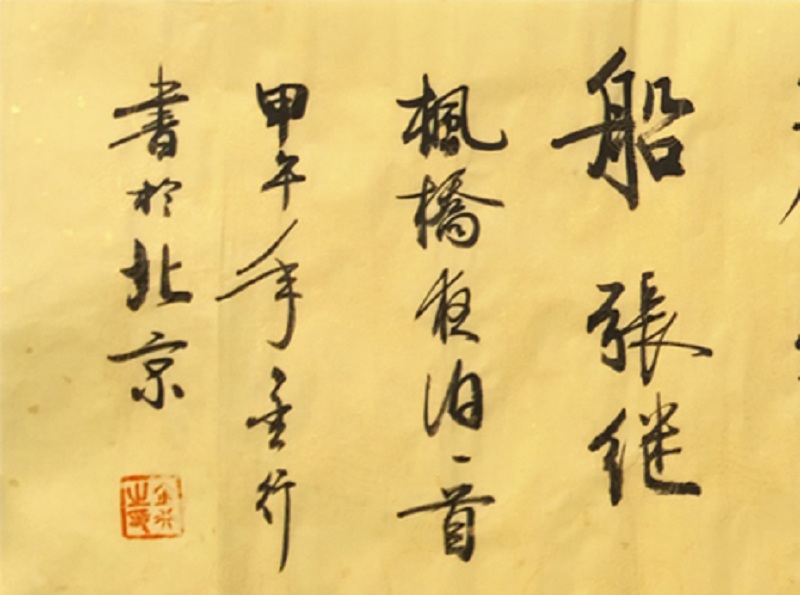 船 張继
楓橋夜泊一首
甲午年金行
書於北京